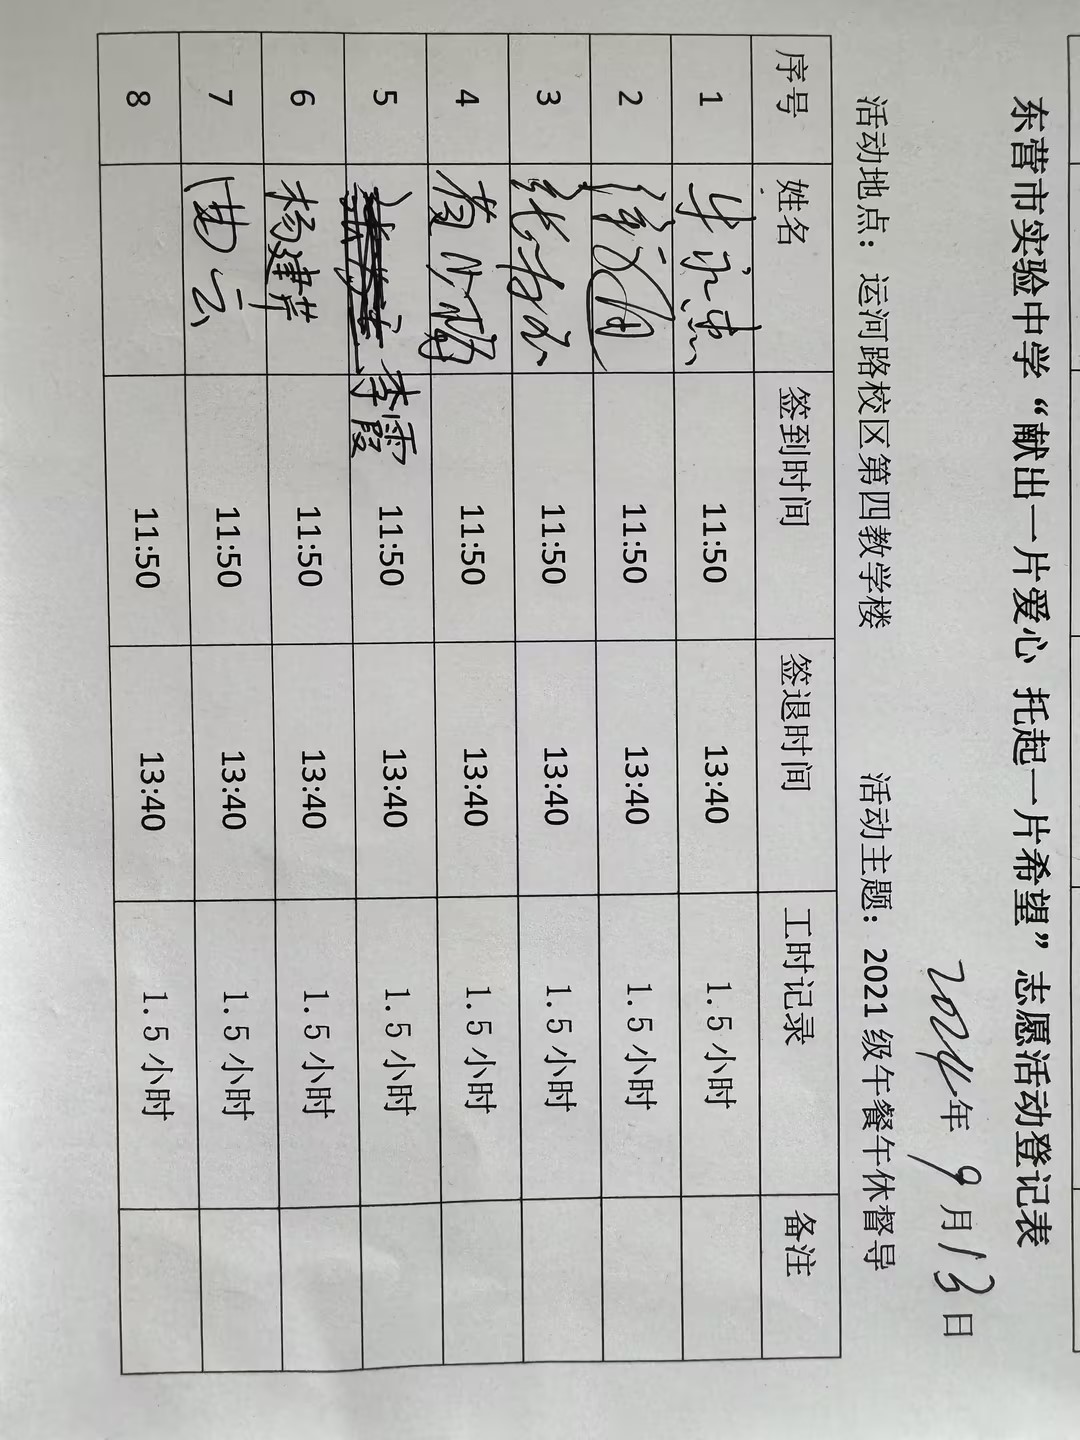 东营市实验中学“献出一片爱心 托起一片希望”志愿活动登记表
2024年9月13日
活动地点：运河路校区第四教学楼 活动主题：2021级午餐午休督导
序号 姓名 签到时间 签退时间 工时记录 备注
1 11:50 13:40 1.5小时
2 11:50 13:40 1.5小时
3 11:50 13:40 1.5小时
4 11:50 13:40 1.5小时
5 李霞 11:50 13:40 1.5小时
6 杨建芹 11:50 13:40 1.5小时
7 曲云 11:50 13:40 1.5小时
8 11:50 13:40 1.5小时